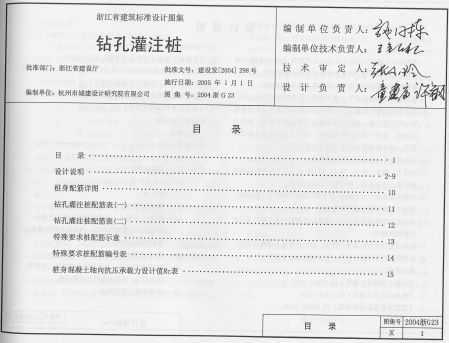 浙江省建筑标准设计图集
钻孔灌注桩
批准部门：浙江省建设厅 批准文号：建设发[2004] 298号
施行日期：2005 年 1 月 1 日
编制单位：杭州市城建设计研究院有限公司 图 集 号：2004浙G23
编制单位负责人：
编制单位技术负责人：
技 术 审 定 人：
设 计 负 责 人：
目 录
目 录 1
设计说明 2-9
桩身配筋详图 10
钻孔灌注桩配筋表(一) 11
钻孔灌注桩配筋表(二) 12
特殊要求桩配筋示意 13
特殊要求桩配筋编号表 14
桩身混凝土轴向抗压承载力设计值Rc表 15
目 录
图集号 2004浙G23
页 1